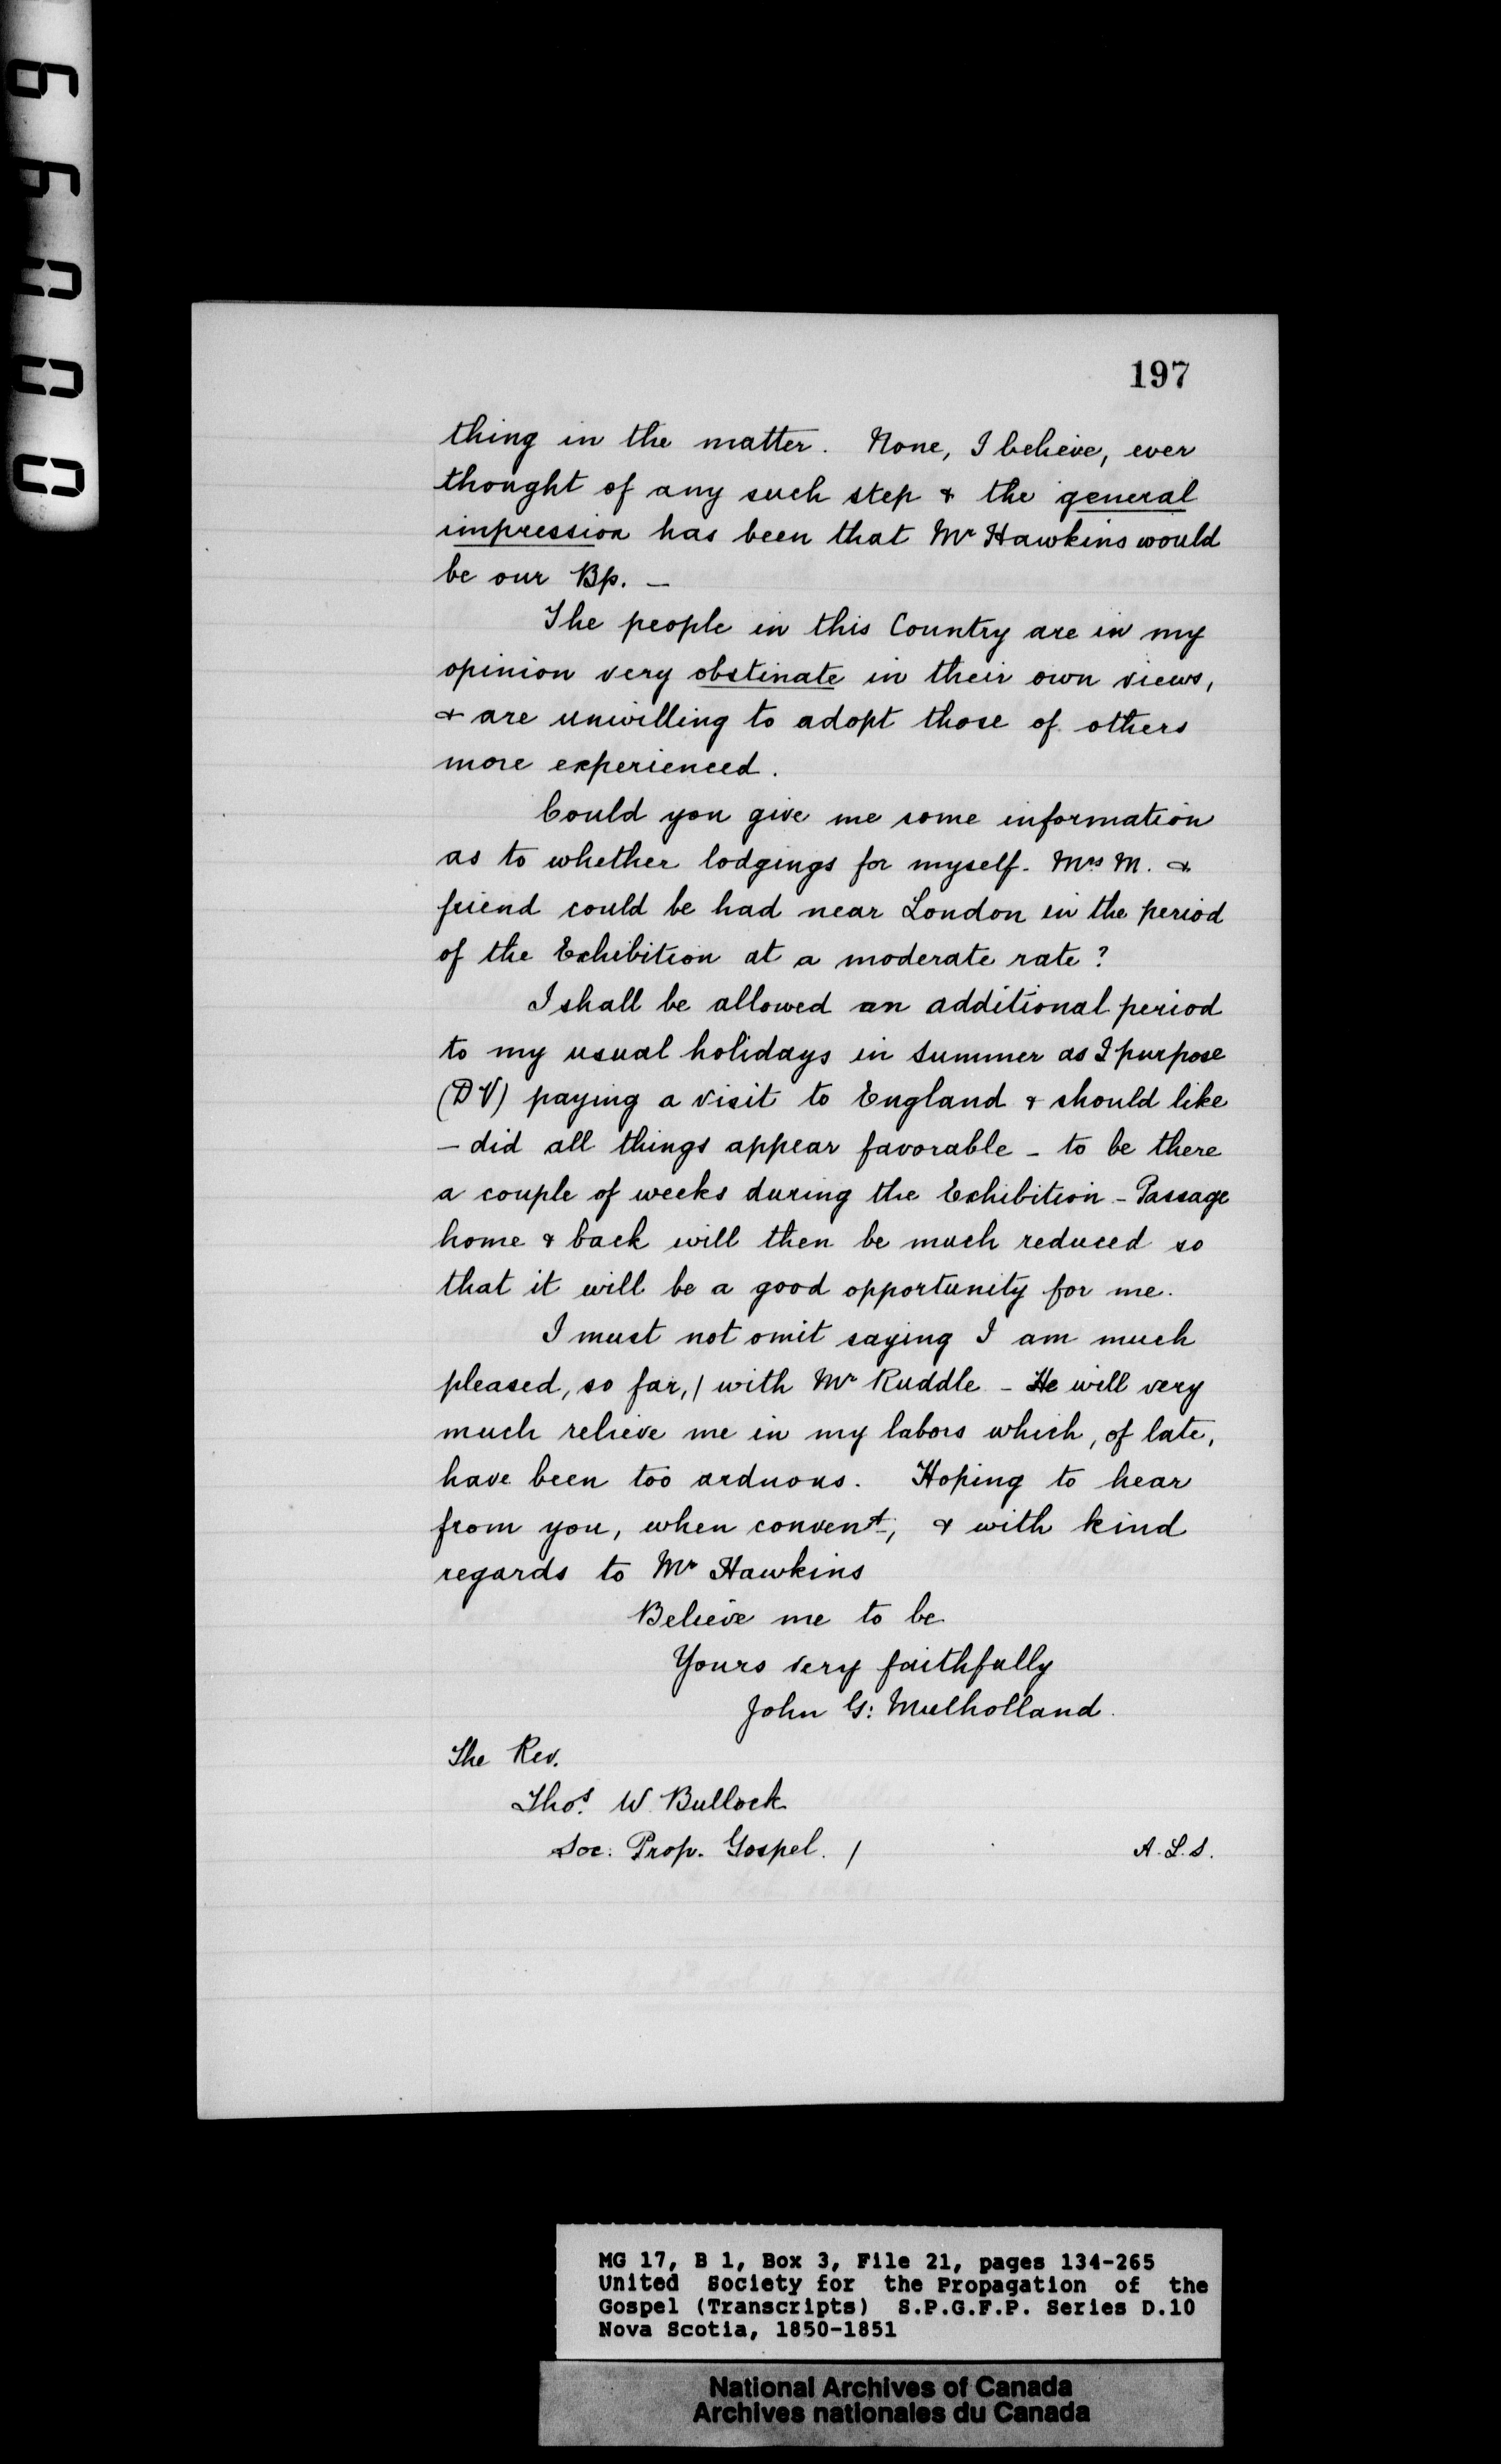 66000
197
thing in the matter. None, I believe, ever
thought of any such step & the general
impression has been that Mr Hawkins would
be our Bp. —
The people in this Country are in my
opinion very obstinate in their own views,
& are unwilling to adopt those of others
more experienced.
Could you give me some information
as to whether lodgings for myself - Mrs M. &
friend could be had near London in the period
of the Exhibition at a moderate rate?
I shall be allowed an additional period
to my usual holidays in summer as I purpose
(DV) paying a visit to England & should like
— did all things appear favorable - to be there
a couple of weeks during the Exhibition - Passage
home & back will then be much reduced so
that it will be a good opportunity for me.
I must not omit saying I am much
pleased, so far, / with Mr Ruddle - He will very
much relieve me in my labors which, of late,
have been too arduous. Hoping to hear
from you, when convent, & with kind
regards to Mr Hawkins
Believe me to be
Yours very faithfully
John G: Mulholland.
The Rev.
Thos. W. Bullock
Soc: Prop. Gospel. /
A.L.S.
MG 17, B 1, Box 3, File 21, pages 134-265
United Society for the Propagation of the
Gospel (Transcripts) S.P.G.F.P. Series D.10
Nova Scotia, 1850-1851
National Archives of Canada
Archives nationales du Canada